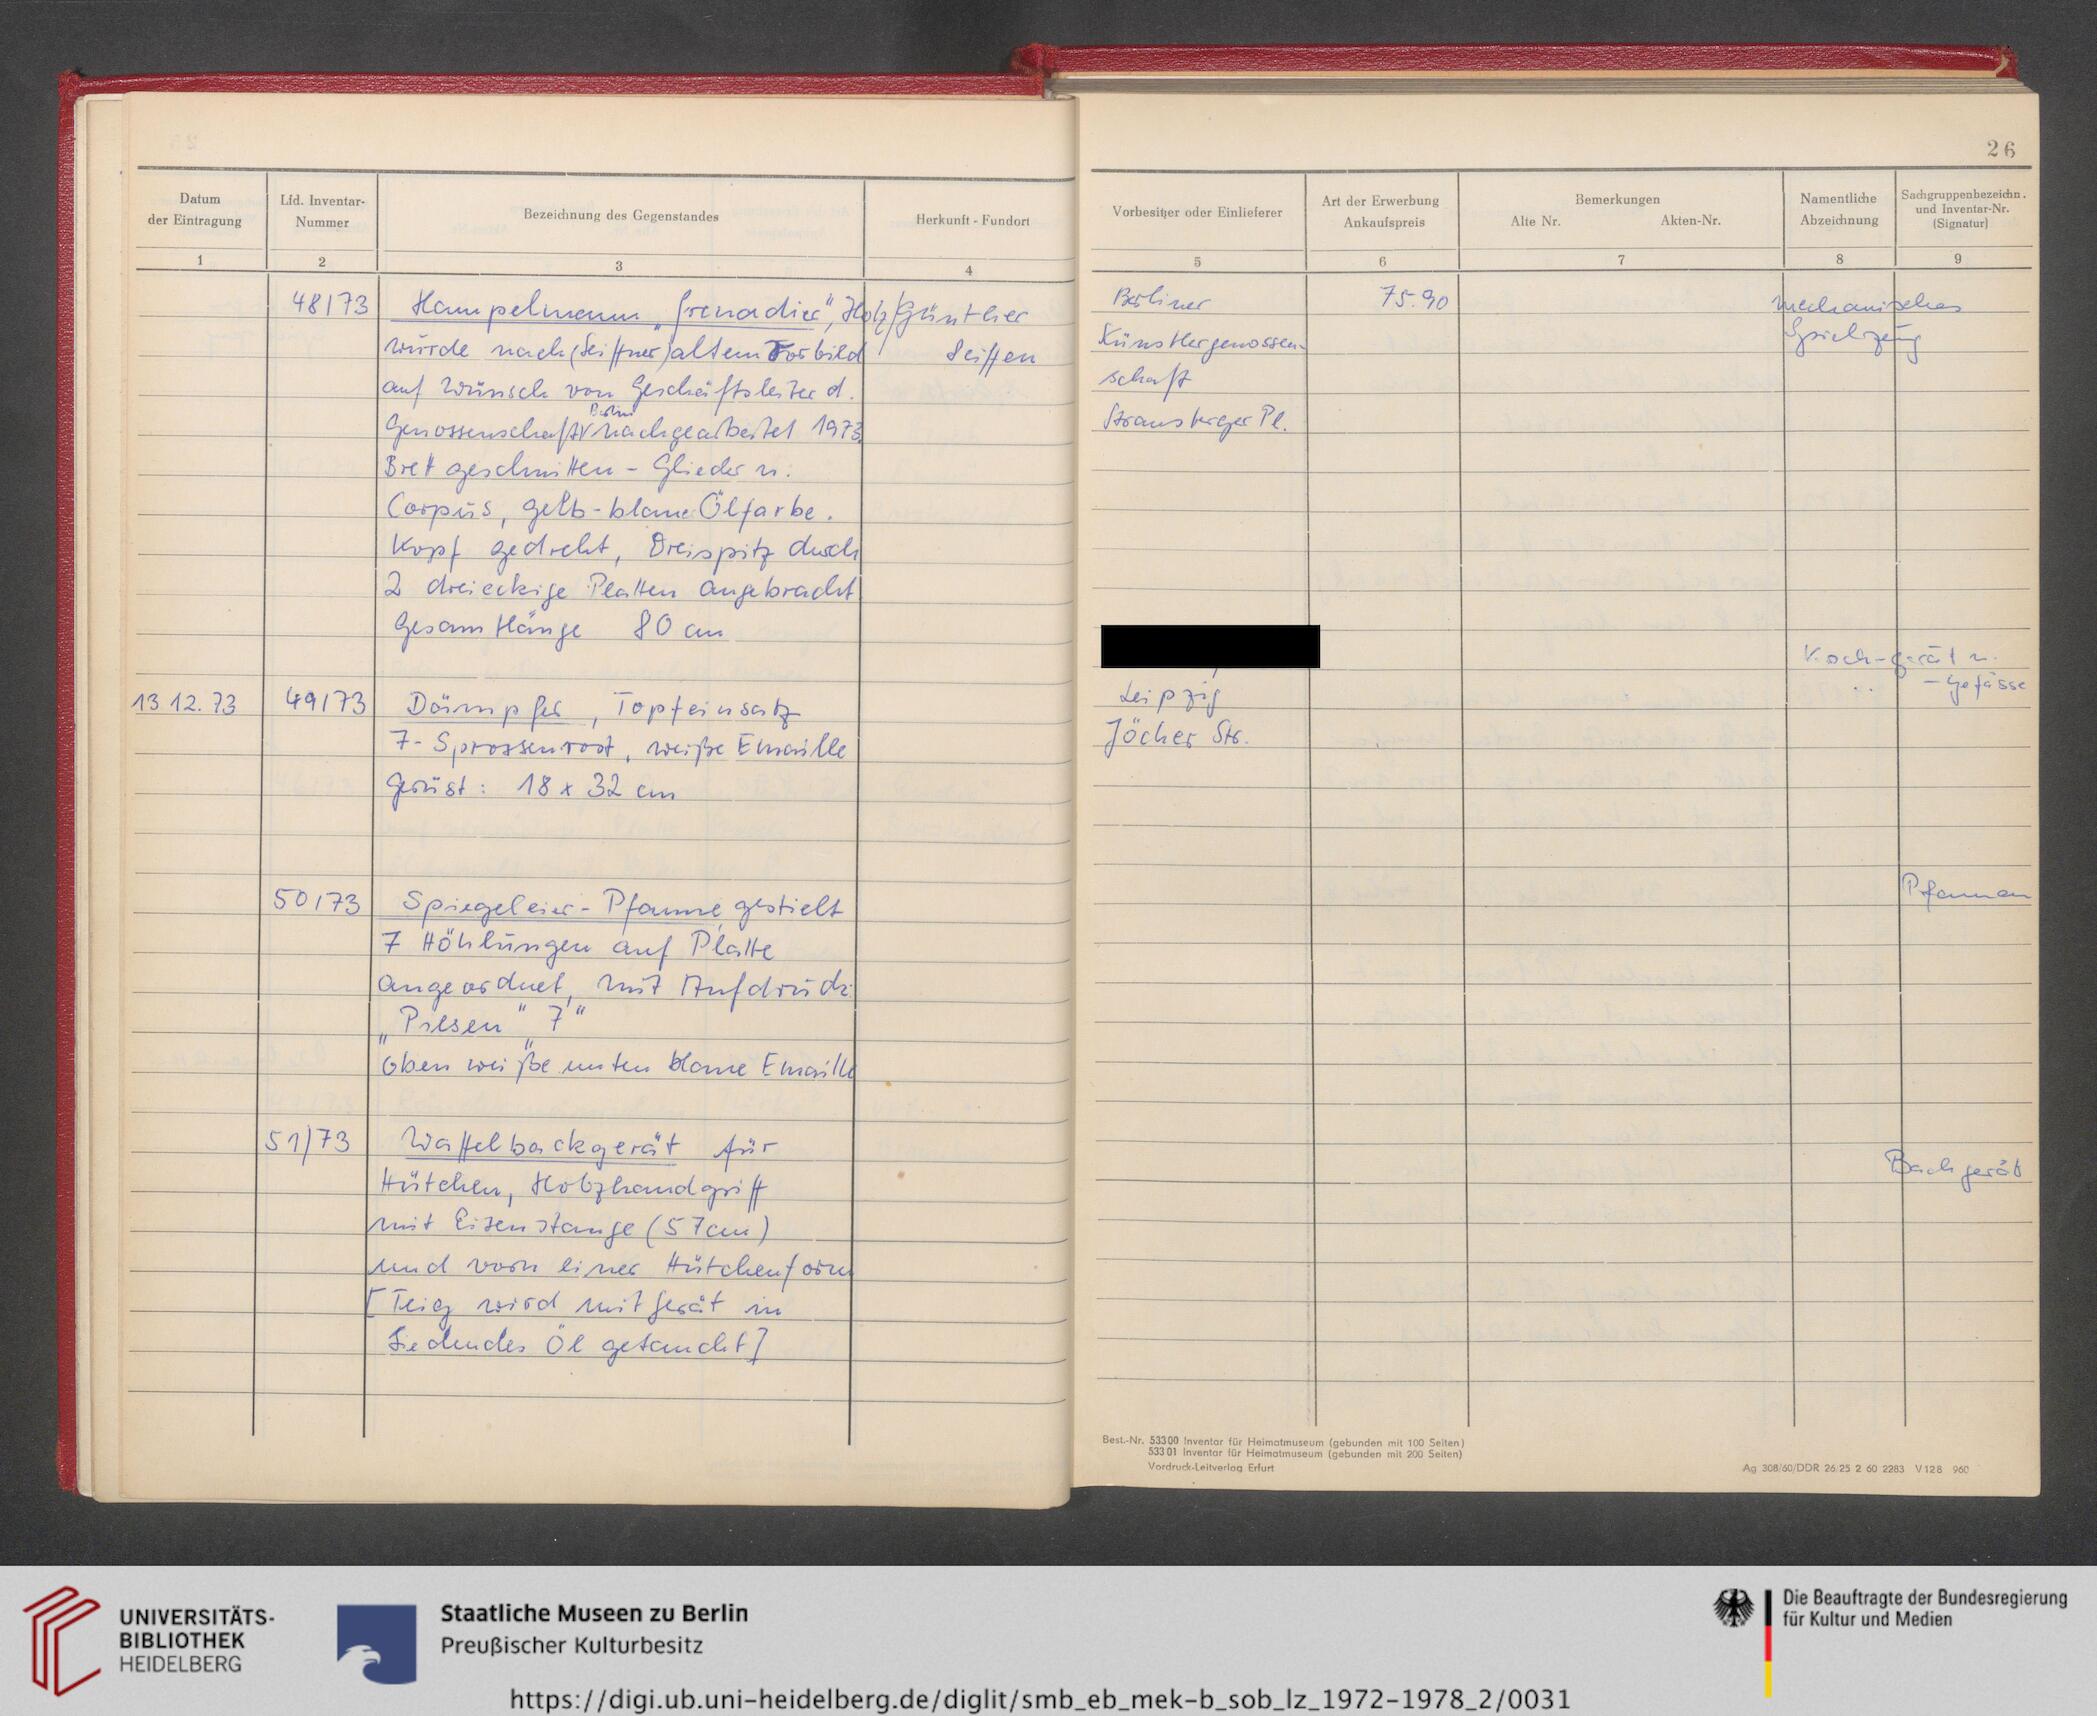 26
Datum
der Eintragung
Lfd. Inventar-
Nummer
Bezeichnung des Gegenstandes
Herkunft - Fundort
Vorbesitzer oder Einlieferer
Art der Erwerbung
Ankaufspreis
Bemerkungen
Alte Nr. Akten-Nr.
Namentliche
Abzeichnung
Sachgruppenbezeichn.
und Inventar-Nr.
(Signatur)
1 2 3 4 5 6 7 8 9
48/73 Hampelmann „Grenadier", Holz/Günther Berliner 75.90 mechanisches
wurde nach (Seiffner) altem Vorbild Seiffen Künstlergenossen- Spielzeug
auf Wunsch von Geschäftsleiter d. schaft
Berlin
Genossenschaft nachgearbeitet 1973 Strausberger Pl.
Brett geschnitten - Glieder u.
Corpus, gelb-blaue Ölfarbe.
Kopf gedreht, Dreispitz durch
2 dreieckige Platten angebracht
Gesamtlänge 80 cm
Koch-gerät u.
- gefässe
13.12.73 49/73 Dämpfer, Topfeinsatz Leipzig
7-Sprossenrost, weiße Emaille Jöcher Str.
Gerüst: 18 x 32 cm
50/73 Spiegeleier-Pfanne, gestielt Pfannen
7 Höhlungen auf Platte
angeordnet, mit Aufdruck:
„Pilsen" 7"
oben weiße unten blaue Emaille
51/73 Waffelbackgerät für Backgerät
Hütchen, Holzhandgriff
mit Eisenstange (57cm)
und vorn einer Hütchenform
[Teig wird mit Gerät in
siedendes Öl getaucht]
Best.-Nr. 53300 Inventar für Heimatmuseum (gebunden mit 100 Seiten)
53301 Inventar für Heimatmuseum (gebunden mit 200 Seiten)
Vordruck-Leitverlag Erfurt
Ag 308/60/DDR 26/25 2 60 2283 V 12 8 960
UNIVERSITÄTS-
BIBLIOTHEK
HEIDELBERG
Staatliche Museen zu Berlin
Preußischer Kulturbesitz
Die Beauftragte der Bundesregierung
für Kultur und Medien
https://digi.ub.uni-heidelberg.de/diglit/smb_eb_mek-b_sob_lz_1972-1978_2/0031